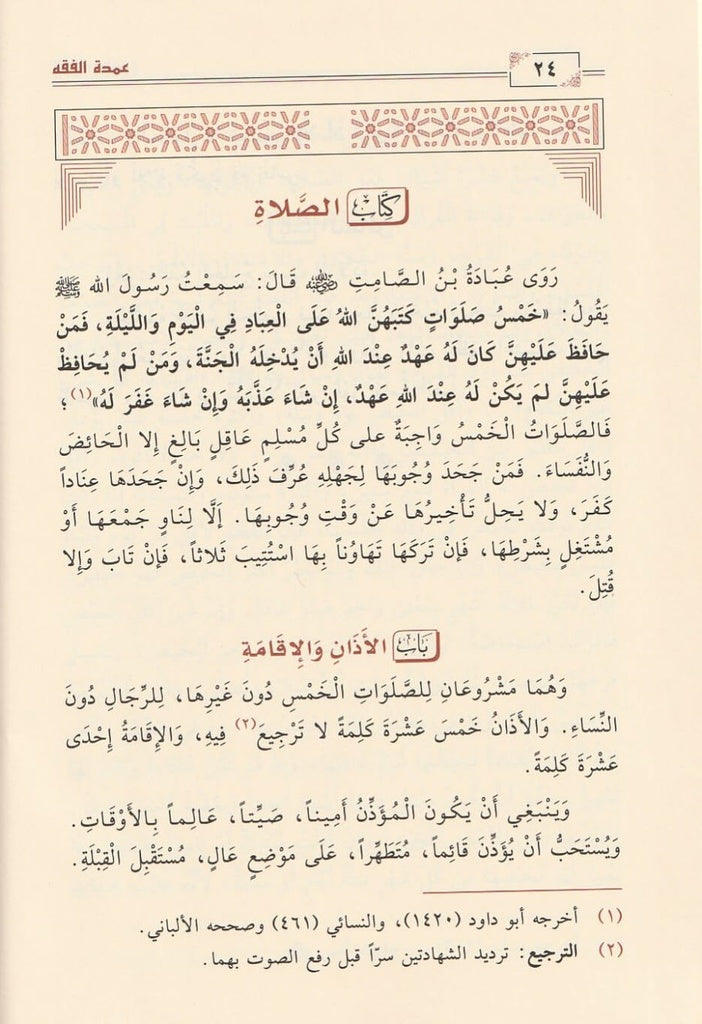 ٢٤
عمدة الفقه
كِتَابُ الصَّلَاةِ
رَوَى عُبَادَةُ بْنُ الصَّامِتِ رضي الله عنه قَالَ: سَمِعْتُ رَسُولَ اللهِ ﷺ
يَقُولُ: «خَمْسُ صَلَوَاتٍ كَتَبَهُنَّ اللهُ عَلَى الْعِبَادِ فِي الْيَوْمِ وَاللَّيْلَةِ، فَمَنْ
حَافَظَ عَلَيْهِنَّ كَانَ لَهُ عَهْدٌ عِنْدَ اللهِ أَنْ يُدْخِلَهُ الْجَنَّةَ، وَمَنْ لَمْ يُحَافِظْ
عَلَيْهِنَّ لَمْ يَكُنْ لَهُ عِنْدَ اللهِ عَهْدٌ، إِنْ شَاءَ عَذَّبَهُ وَإِنْ شَاءَ غَفَرَ لَهُ»(١)؛
فَالصَّلَوَاتُ الْخَمْسُ وَاجِبَةٌ على كُلِّ مُسْلِمٍ عَاقِلٍ بَالِغٍ إِلا الْحَائِضَ
وَالنُّفَسَاءَ. فَمَنْ جَحَدَ وُجُوبَهَا لِجَهْلِهِ عُرِّفَ ذَلِكَ، وَإِنْ جَحَدَهَا عِنَاداً
كَفَرَ، وَلا يَحِلُّ تَأْخِيرُهَا عَنْ وَقْتِ وُجُوبِهَا. إَلَّا لِنَاوٍ جَمْعَهَا أَوْ
مُشْتَغِلٍ بِشَرْطِهَا، فَإنْ تَرَكَهَا تَهَاوُناً بِهَا اسْتُتِيبَ ثَلاثاً، فَإنْ تَابَ وَإِلا
قُتِلَ.
بَابُ الأَذَانِ وَالإِقَامَةِ
وَهُمَا مَشْرُوعَانِ لِلصَّلَوَاتِ الْخَمْسِ دُونَ غَيْرِهَا، لِلرِّجَالِ دُونَ
النِّسَاءِ. وَالأَذَانُ خَمْسَ عَشْرَةَ كَلِمَةً لا تَرْجِيعَ(٢) فِيهِ، وَالإِقَامَةُ إِحْدَى
عَشْرَةَ كَلِمَةً.
وَيَنْبَغِي أَنْ يَكُونَ الْمُؤَذِّنُ أَمِيناً، صَيِّتاً، عَالِماً بِالأَوْقَاتِ.
وَيُسْتَحَبُّ أَنْ يُؤَذِّنَ قَائِماً، مُتَطَهِّراً، عَلَى مَوْضِعٍ عَالٍ، مُسْتَقْبِلَ الْقِبْلَةِ.
(١) أخرجه أبو داود (١٤٢٠)، والنسائي (٤٦١) وصححه الألباني.
(٢) الترجيع: ترديد الشهادتين سرّاً قبل رفع الصوت بهما.